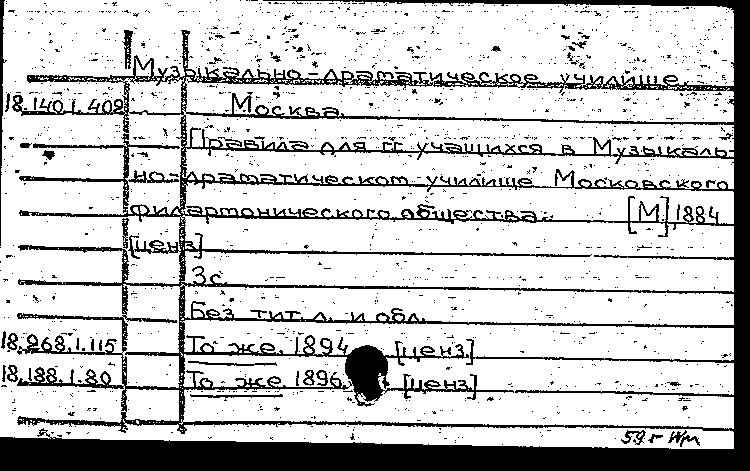 Музыкально-драматическое училище.
18.140.1.402 Москва.
Правила для гг учащихся в Музыкаль-
но-драматическом училище Московского
филармонического общества. [М], 1884
[ценз]
3с.
Без тит. л. и обл.
18.268.1.115 То же. 1894 [ценз]
18.188.1.80 То же. 1896. [ценз]
59г